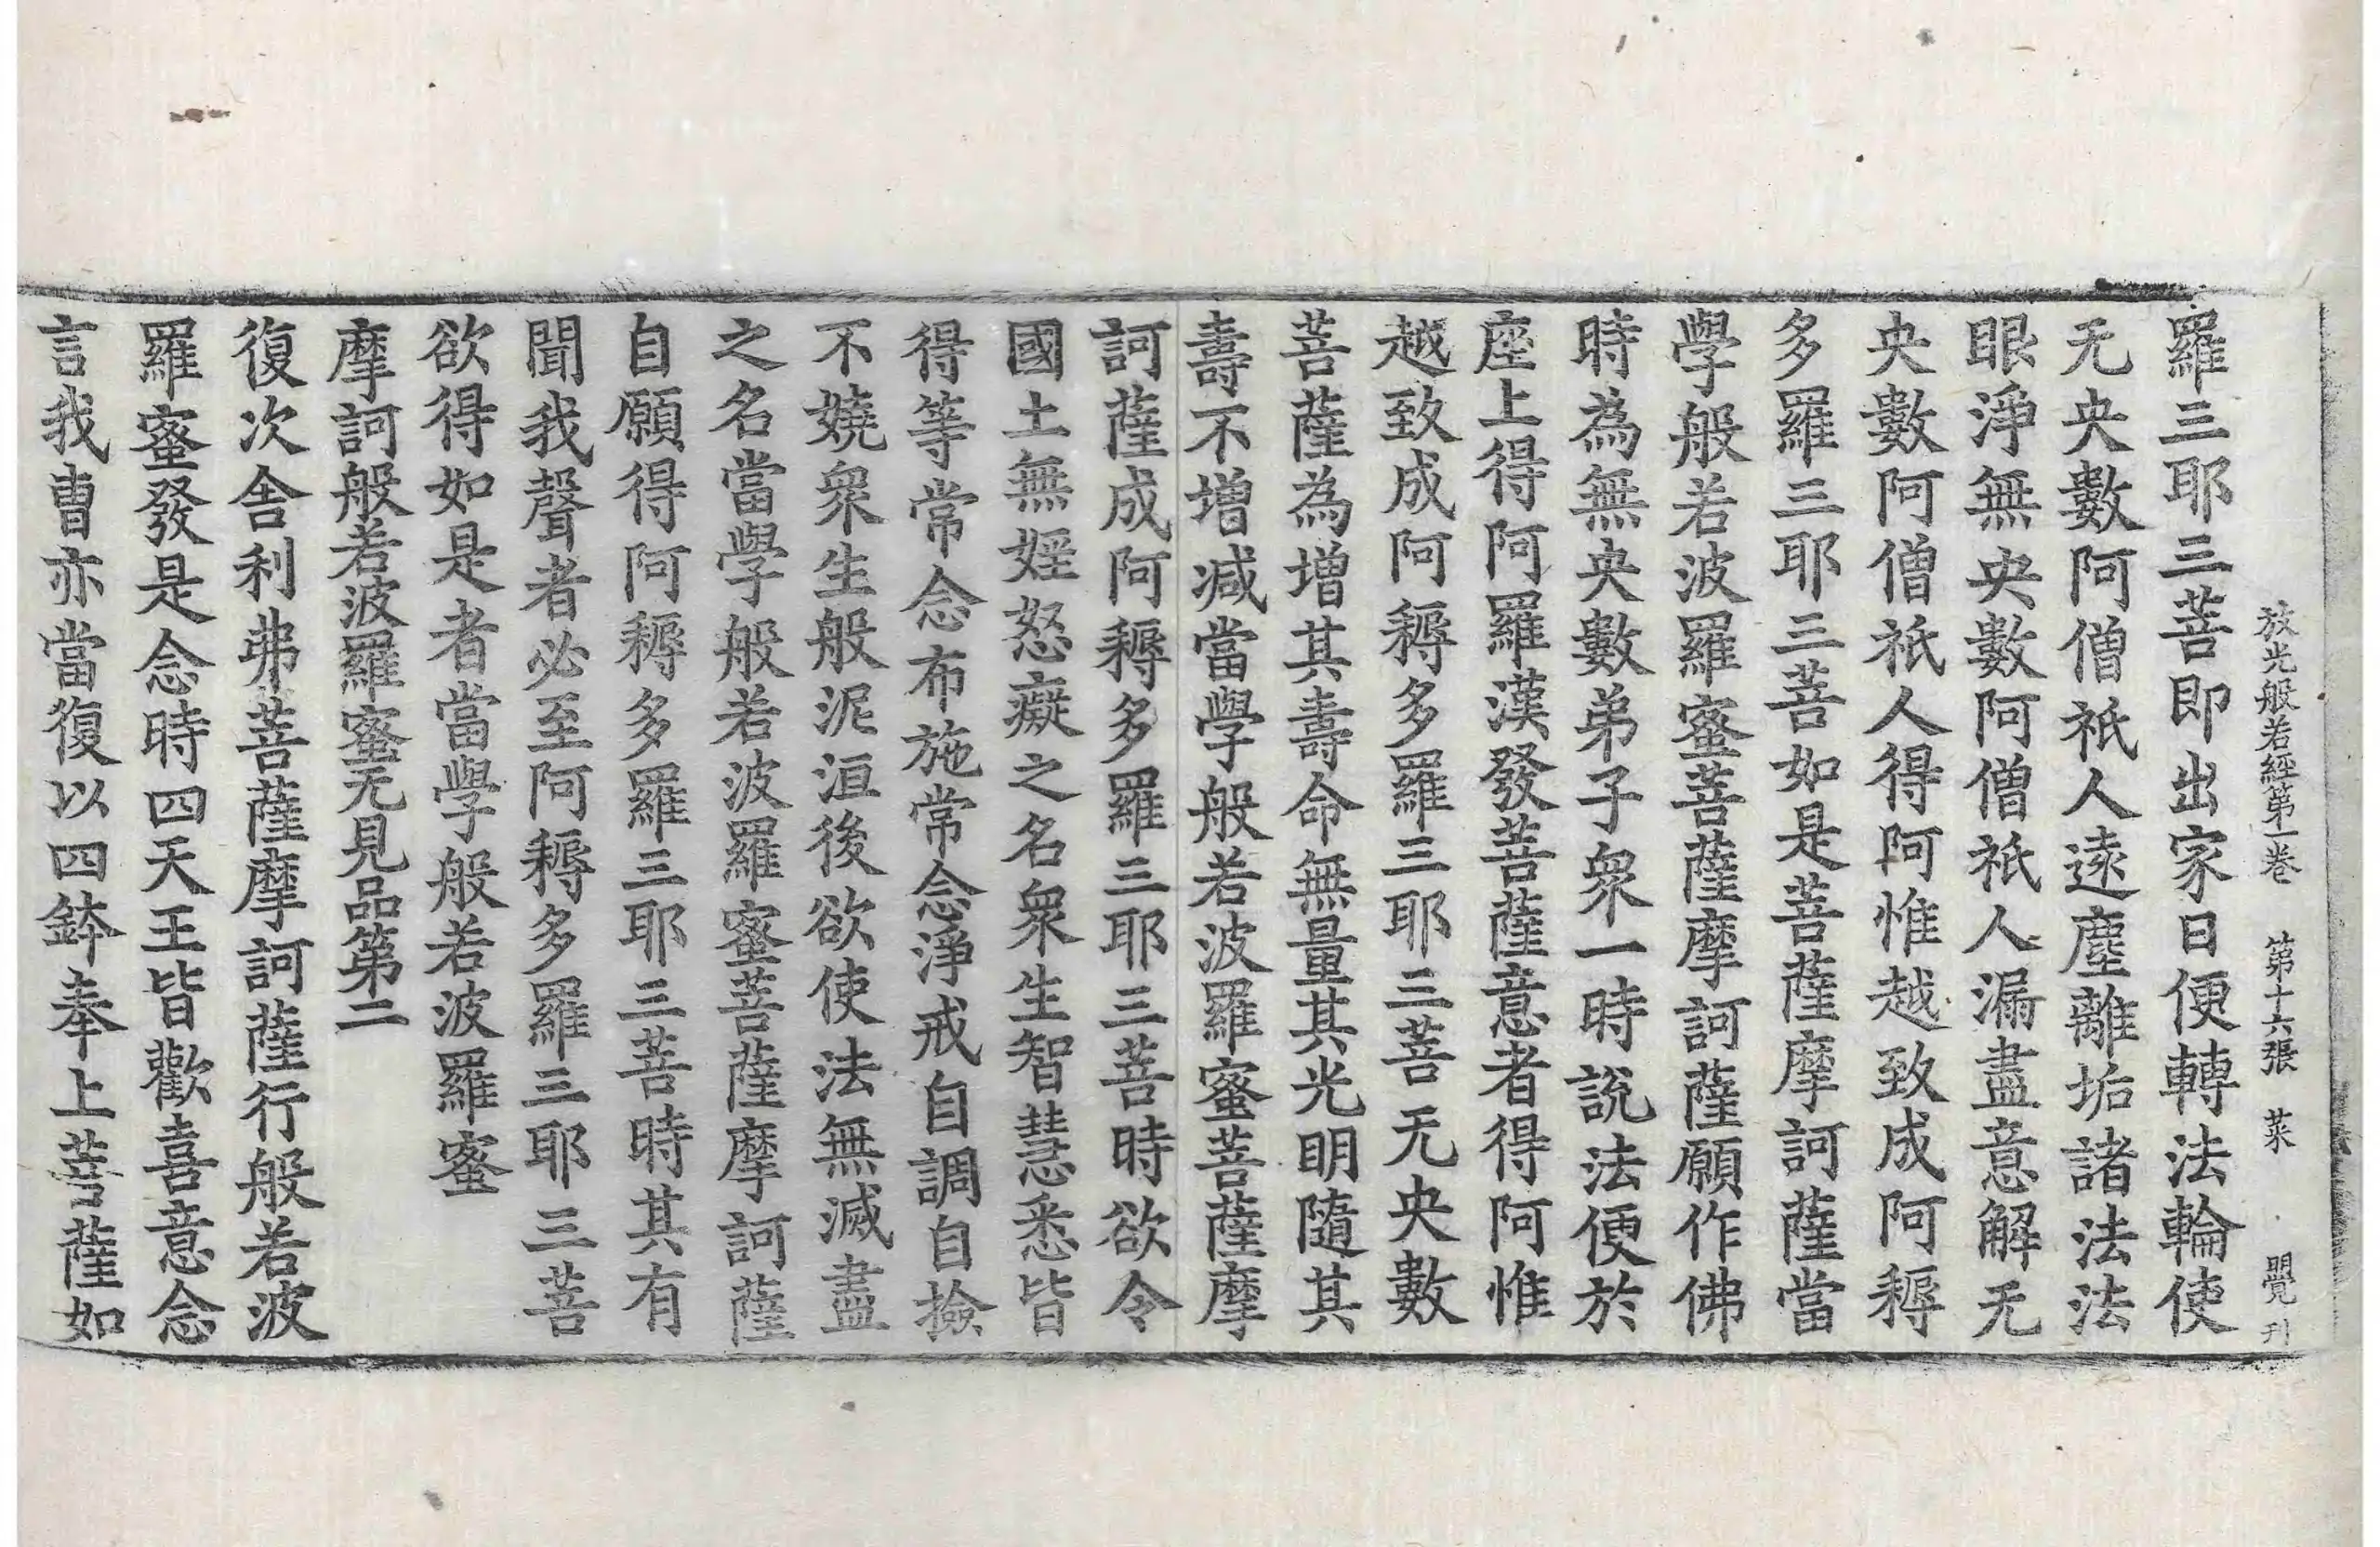 放光般若經第一卷 第十六張 菜 覺刊
羅三耶三菩即出家日便轉法輪使
无央數阿僧祇人遠塵離垢諸法法
眼淨無央數阿僧祇人漏盡意解无
央數阿僧祇人得阿惟越致成阿耨
多羅三耶三菩如是菩薩摩訶薩當
學般若波羅蜜菩薩摩訶薩願作佛
時為無央數弟子衆一時說法便於
座上得阿羅漢發菩薩意者得阿惟
越致成阿耨多羅三耶三菩无央數
菩薩為增其壽命無量其光明隨其
壽不增減當學般若波羅蜜菩薩摩
訶薩成阿耨多羅三耶三菩時欲令
國土無婬怒癡之名衆生智慧悉皆
得等常念布施常念淨戒自調自撿
不嬈衆生般泥洹後欲使法無滅盡
之名當學般若波羅蜜菩薩摩訶薩
自願得阿耨多羅三耶三菩時其有
聞我聲者必至阿耨多羅三耶三菩
欲得如是者當學般若波羅蜜
摩訶般若波羅蜜无見品第二
復次舍利弗菩薩摩訶薩行般若波
羅蜜發是念時四天王皆歡喜意念
言我曹亦當復以四鉢奉上菩薩如